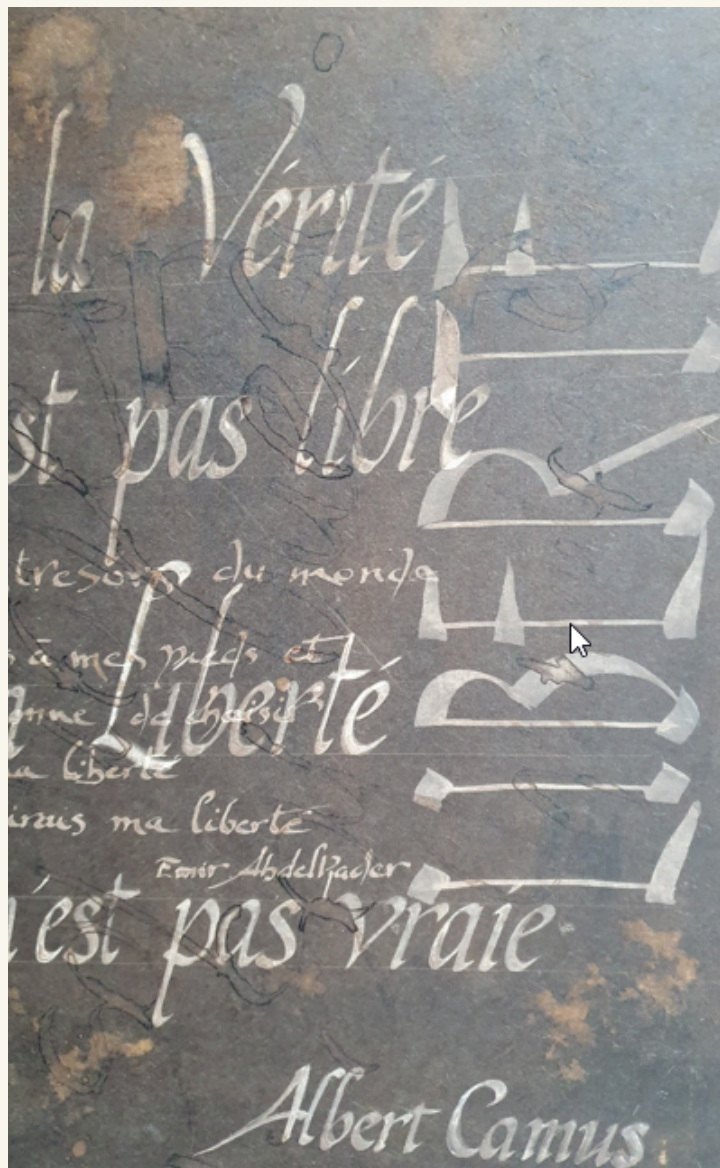 la Vérité
st pas libre
tresors du monde
s à mes pieds et
Liberté
onne de choisir
a liberté
irais ma liberté
Emir Abdelkader
'est pas vraie
Albert Camus
LIBERTE